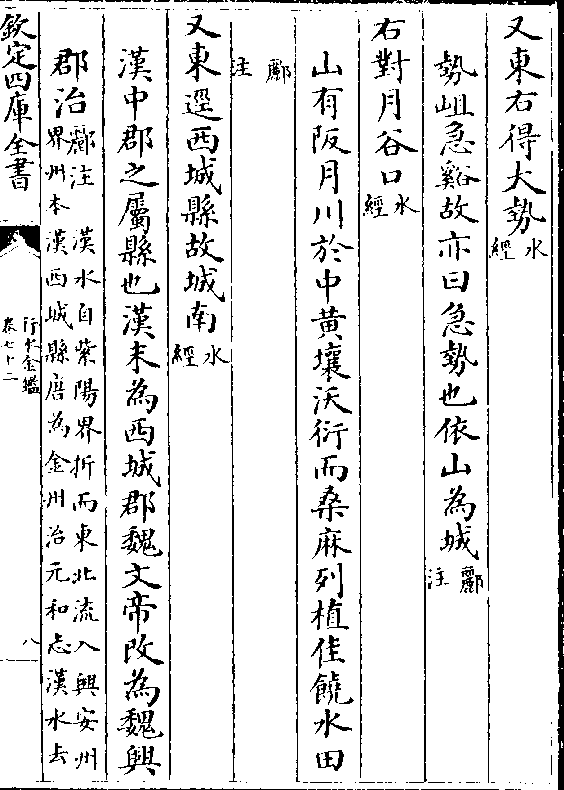 又東右得大勢水經
勢岨急谿故亦曰急勢也依山為城酈注
右對月谷口水經
山有阪月川於中黃壤沃衍而桑麻列植佳饒水田
酈注
又東逕西城縣故城南水經
漢中郡之屬縣也漢末為西城郡魏文帝改為魏興
郡治酈注漢水自紫陽界折而東北流入興安州
界州本漢西城縣唐為金州治元和志漢水去
欽定四庫全書
行水金鑑
卷七十二
八